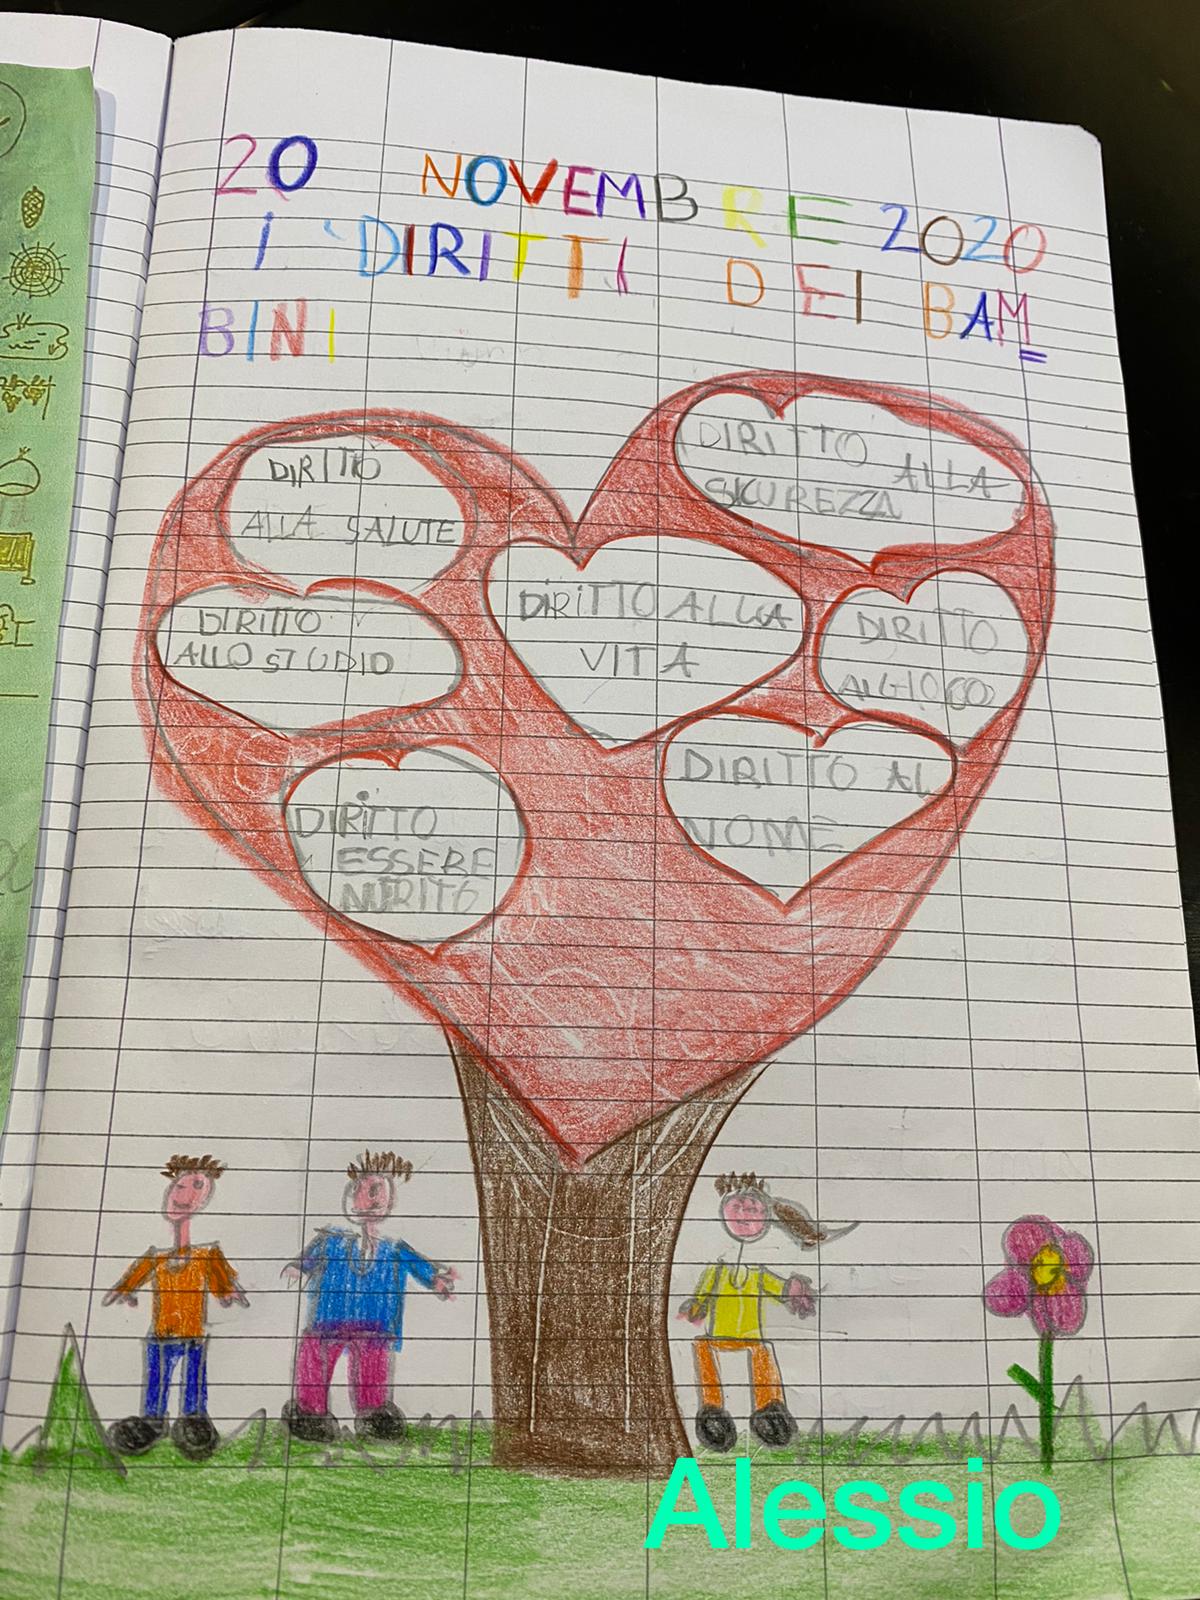 20 NOVEMBRE 2020
I DIRITTI DEI BAM
BINI
DIRITTO
ALLA SALUTE
DIRITTO ALLA
SICUREZZA
DIRITTO
ALLO STUDIO
DIRITTO ALLA
VITA
DIRITTO
AL GIOCO
DIRITTO
ESSERE
DIRITTO AL
NOME
Alessio